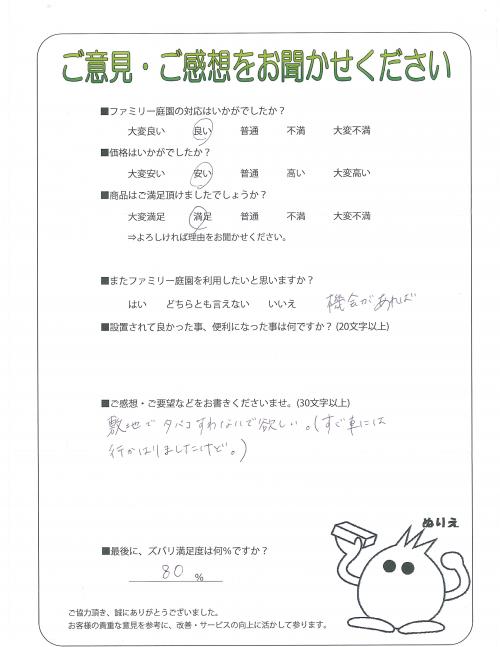 ご意見・ご感想をお聞かせください
■ファミリー庭園の対応はいかがでしたか？
大変良い 良い 普通 不満 大変不満
■価格はいかがでしたか？
大変安い 安い 普通 高い 大変高い
■商品はご満足頂けましたでしょうか？
大変満足 満足 普通 不満 大変不満
⇒よろしければ理由をお聞かせください。
■またファミリー庭園を利用したいと思いますか？
はい どちらとも言えない いいえ 機会があれば
■設置されて良かった事、便利になった事は何ですか？(20文字以上)
■ご感想・ご要望などをお書きくださいませ。(30文字以上)
敷地でタバコすわないで欲しい。(すぐ車には
行かはりましたけど。)
ぬりえ
■最後に、ズバリ満足度は何％ですか？
80 %
ご協力頂き、誠にありがとうございました。
お客様の貴重な意見を参考に、改善・サービスの向上に活かして参ります。